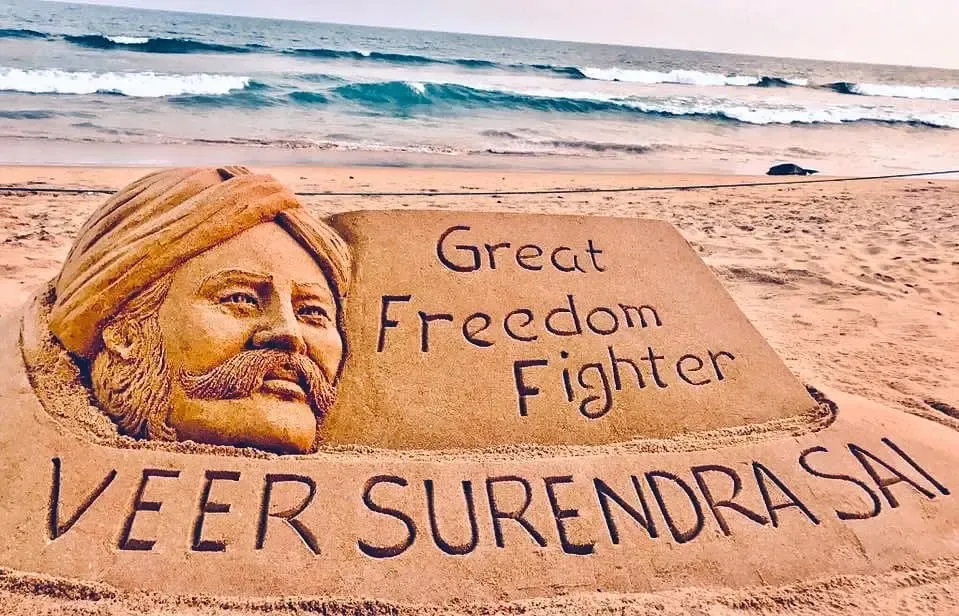 Great
Freedom
Fighter
VEER SURENDRA SAI